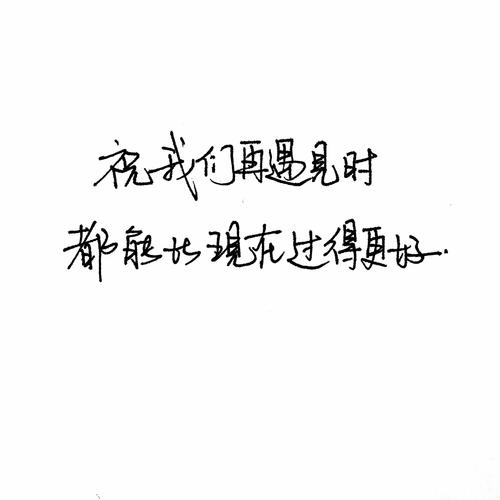 祝我们再遇见时
都能比现在过得更好.